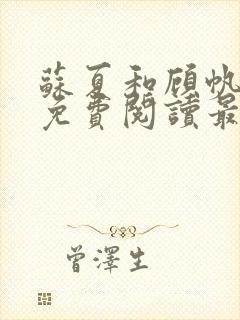 蘇夏和顧帆
免費閱讀最
曾澤生